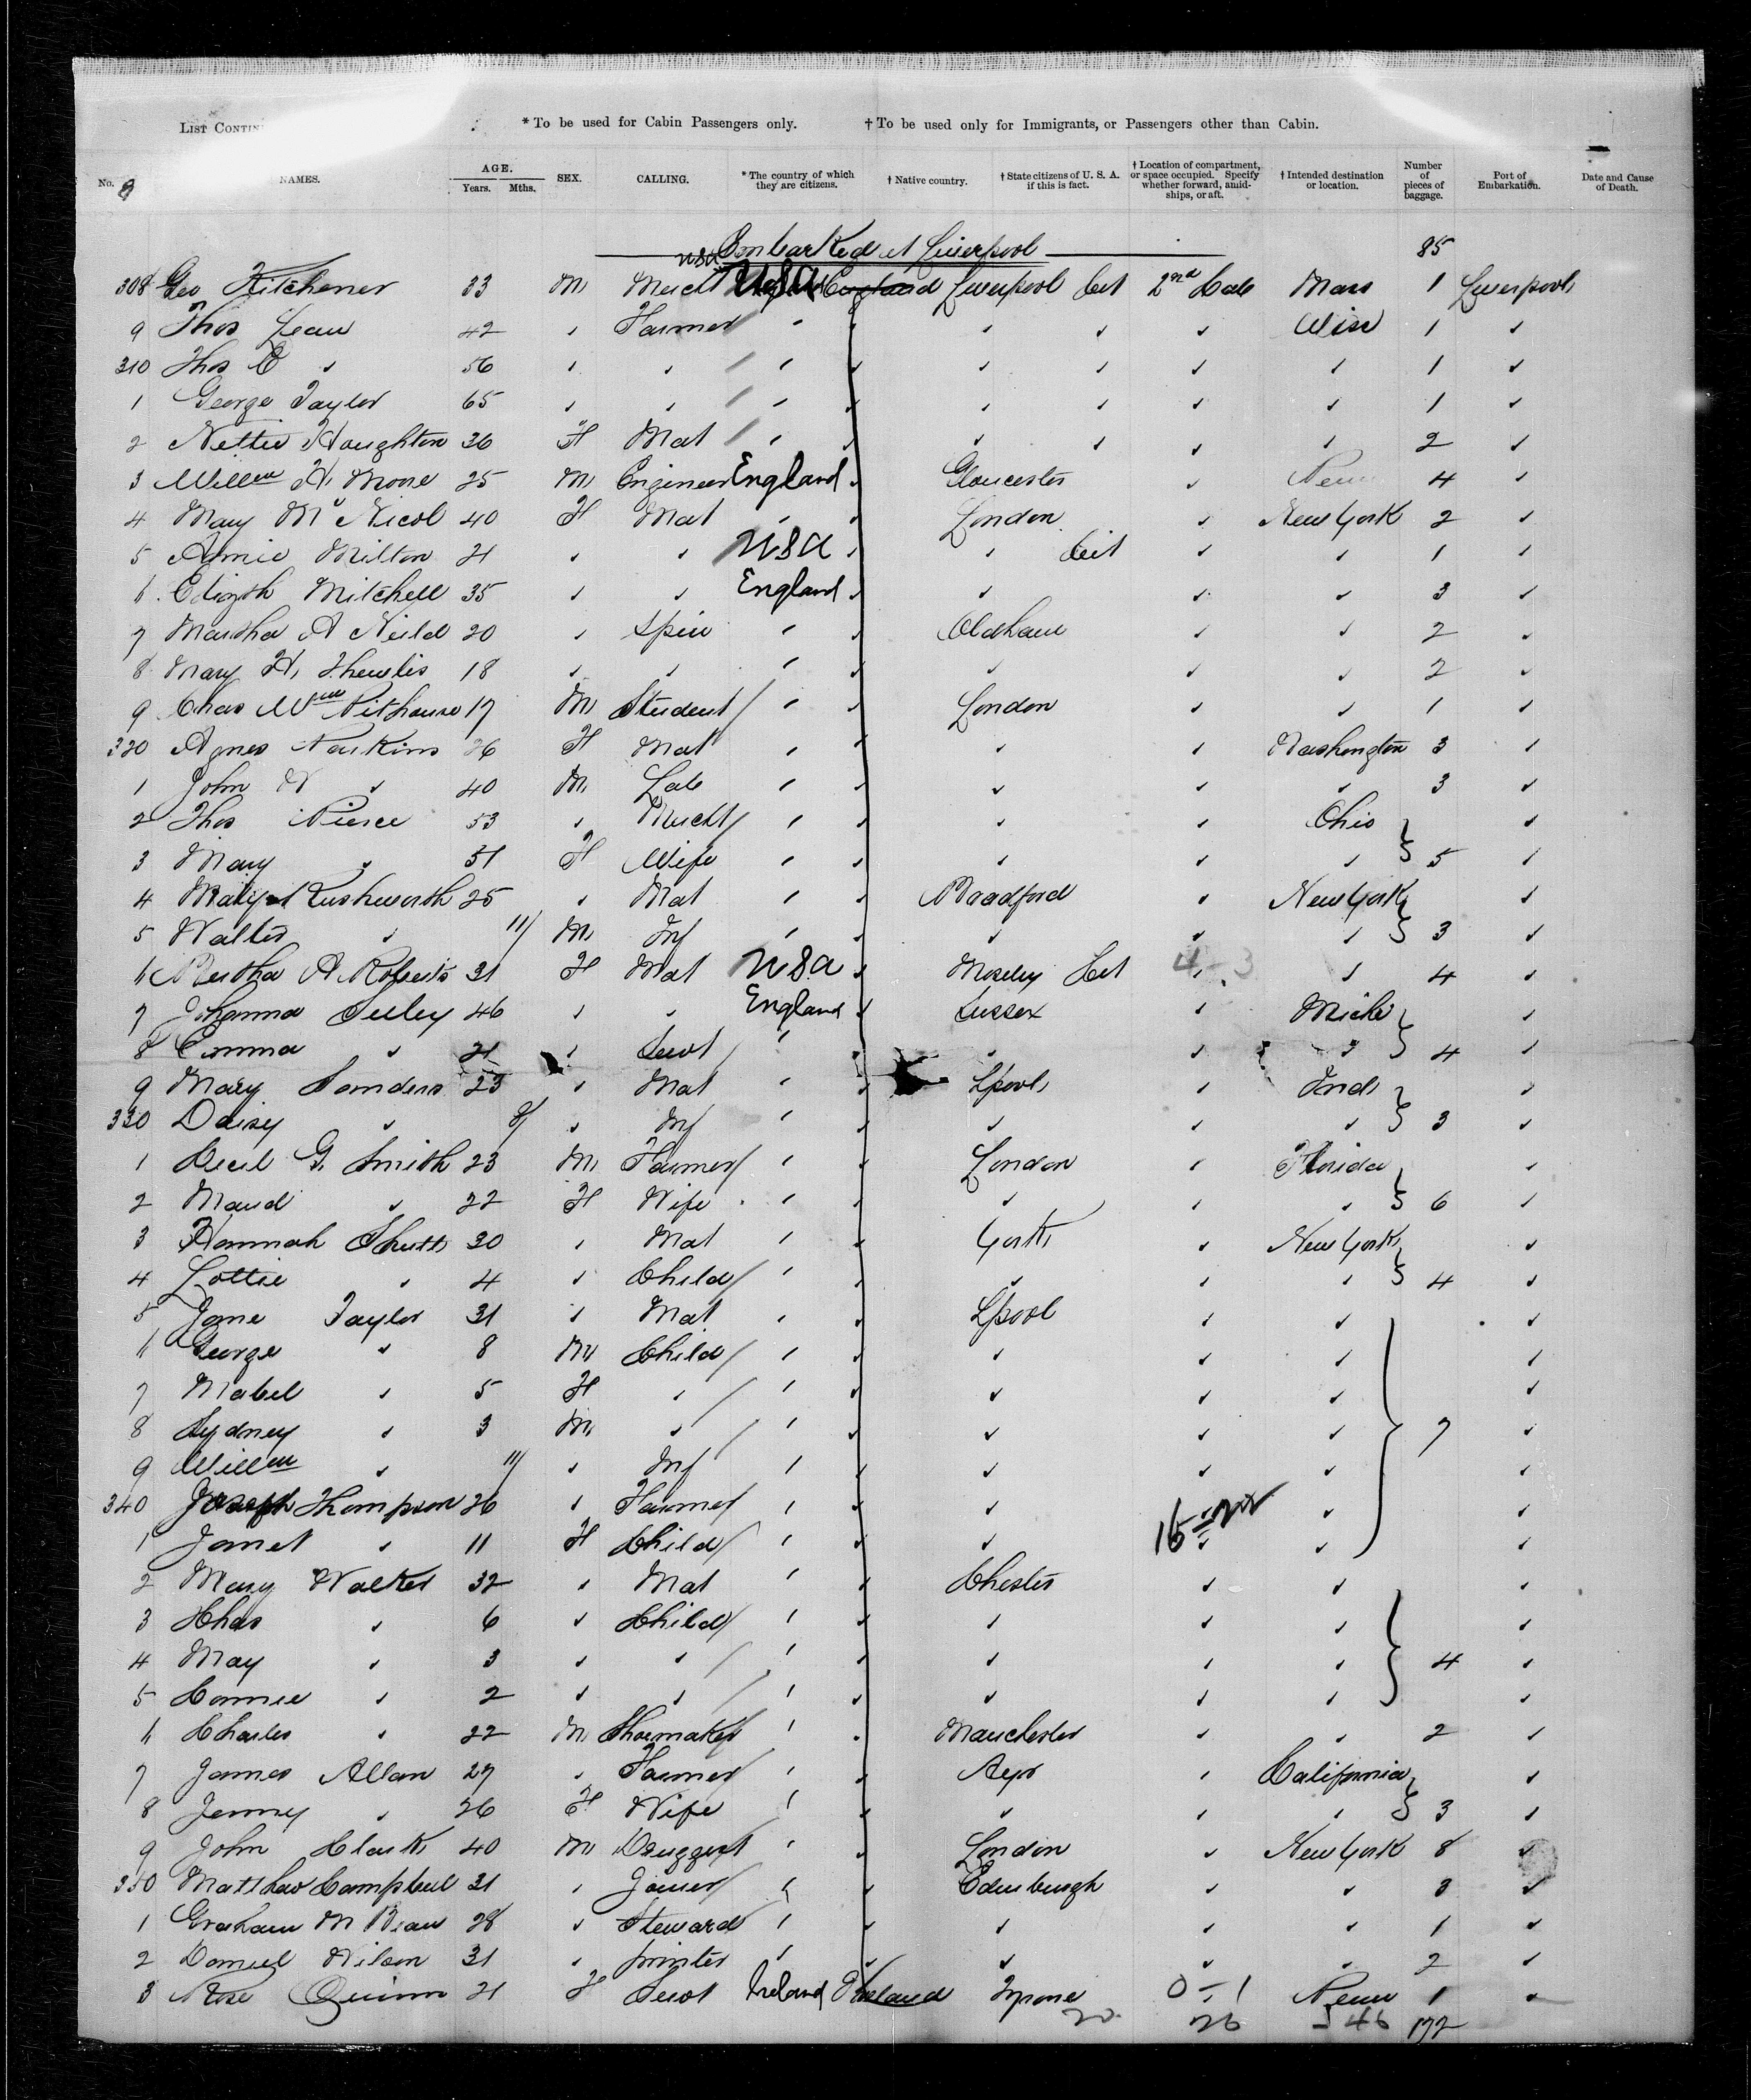 LIST CONTIN
* To be used for Cabin Passengers only. † To be used only for Immigrants, or Passengers other than Cabin.
No. NAMES. AGE. Years. Mths. SEX. CALLING. * The country of which they are citizens. † Native country. † State citizens of U. S. A. if this is fact. † Location of compartment, or space occupied. Specify whether forward, amidships, or aft. † Intended destination or location. Number of pieces of baggage. Port of Embarkation. Date and Cause of Death.
Embarked at Liverpool 85
308 Geo Kitchener 33 M Mercht USA England Liverpool Cit 2nd Cab Mass 1 Liverpool
9 Thos 42 ✓ Farmer " ✓ ✓ ✓ ✓ 1 ✓
310 Thos ✓ 56 ✓ ✓ " ✓ ✓ ✓ ✓ ✓ 1 ✓
1 George Taylor 65 ✓ ✓ " ✓ ✓ ✓ ✓ ✓ 1 ✓
2 Nettie Houghton 36 F Mat " ✓ ✓ ✓ ✓ ✓ 2 ✓
3 Willm H. Moore 25 M Engineer England ✓ Gloucester ✓ Penn 4 ✓
4 Mary McNicol 40 F Mat " ✓ London ✓ New York 2 ✓
5 Annie Milton 21 ✓ ✓ USA ✓ ✓ Cit ✓ ✓ 1 ✓
6 Elizath Mitchell 35 ✓ ✓ England ✓ ✓ ✓ ✓ 3 ✓
7 Martha A Neild 20 ✓ Spin " ✓ Oldham ✓ ✓ 2 ✓
8 Mary H. Thewlis 18 ✓ ✓ " ✓ ✓ ✓ ✓ 2 ✓
9 Chas Wm Pithouse 17 M Student " ✓ London ✓ ✓ 1 ✓
320 Agnes 26 F Mat " ✓ ✓ ✓ Washington 3 ✓
1 John W ✓ 40 M Lab " ✓ ✓ ✓ ✓ 3 ✓
2 Thos Pierce 53 ✓ Mercht " ✓ ✓ ✓ Ohio ✓
3 Mary ✓ 51 F Wife " ✓ ✓ ✓ ✓ 5 ✓
4 Rushworth 25 ✓ Mat " ✓ Bradford ✓ New York ✓
5 Walter ✓ 11/ M Inf " ✓ ✓ ✓ ✓ 3 ✓
6 Bertha A Roberts 31 F Mat USA ✓ Moseley Cit 4-3 ✓ 4 ✓
7 Johanna Selley 46 ✓ ✓ England ✓ Sussex ✓ Mich ✓
8 Emma ✓ 21 ✓ Servt " ✓ ✓ ✓ ✓ 4 ✓
9 Mary Sanders 23 ✓ Mat " ✓ Lpool ✓ Ind ✓
330 Daisy ✓ ✓ Inf " ✓ ✓ ✓ ✓ 3 ✓
1 Cecil G. Smith 23 M Farmer " ✓ London ✓ Florida ✓
2 Maud ✓ 22 F Wife " ✓ ✓ ✓ ✓ 6 ✓
3 Hannah 30 ✓ Mat " ✓ York ✓ New York ✓
4 Lottie ✓ 4 ✓ Child " ✓ ✓ ✓ ✓ 4 ✓
5 Jane Taylor 31 ✓ Mat " ✓ Lpool ✓ ✓ ✓
6 George ✓ 8 M Child " ✓ ✓ ✓ ✓ ✓
7 Mabel ✓ 5 F ✓ " ✓ ✓ ✓ ✓ ✓
8 Sydney ✓ 3 M ✓ " ✓ ✓ ✓ ✓ 7 ✓
9 Willm ✓ 11/ ✓ Inf " ✓ ✓ ✓ ✓ ✓
340 Joseph Thompson 26 ✓ Farmer " ✓ ✓ ✓ ✓
1 Janet ✓ 11 F Child " ✓ ✓ 15 ✓ ✓
2 Mary Walker 32 ✓ Mat " ✓ Chester ✓ ✓ ✓
3 Chas ✓ 6 ✓ Child " ✓ ✓ ✓ ✓ ✓
4 May ✓ 3 ✓ ✓ " ✓ ✓ ✓ ✓ 4 ✓
5 Connie ✓ 2 ✓ ✓ " ✓ ✓ ✓ ✓ ✓
6 Charles ✓ 22 M Shoemaker " ✓ Manchester ✓ ✓ 2 ✓
7 James Allan 27 ✓ Farmer " ✓ Ayr ✓ California ✓
8 Jenny ✓ 26 F Wife " ✓ ✓ ✓ ✓ 3 ✓
9 John Clark 40 M Druggist " ✓ London ✓ New York 8 ✓
350 Matthew Campbell 31 ✓ Joiner " ✓ Edinburgh ✓ ✓ 3 ✓
1 Graham McBean 28 ✓ Steward " ✓ ✓ ✓ ✓ 1 ✓
2 Daniel Wilson 31 ✓ printer " ✓ ✓ ✓ 2 ✓
3 Rose Quinn 21 F Servt Ireland Ireland Tyrone 0-1 Penn 1 ✓
20 26 46 172